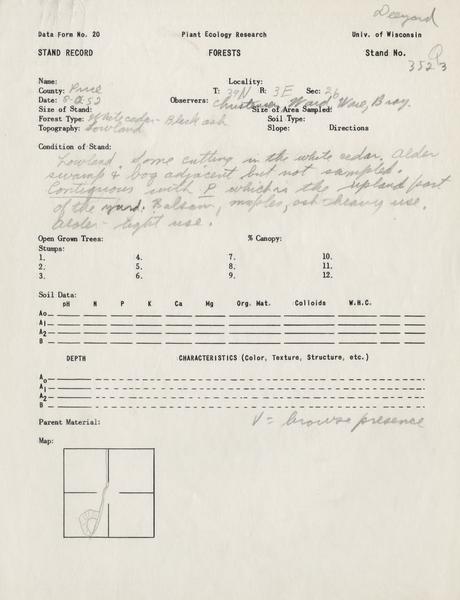 Deeryard
Data Form No. 20 Plant Ecology Research Univ. of Wisconsin
STAND RECORD FORESTS Stand No. Q
3523
Name: Locality:
County: Price T: 39N R: 3E Sec: 26
Date: 8-9-52 Observers: Christensen, Ward, Ware, Bray
Size of Stand: Size of Area Sampled:
Forest Type: White cedar - Black ash Soil Type:
Topography: Lowland Slope: Directions
Condition of Stand:
Lowland. Some cutting in the white cedar. Alder
swamp & bog adjacent but not sampled.
Contiguous with P which is the upland part
of the yard. Balsam, maples, ash heavy use.
Alder - light use.
Open Grown Trees: % Canopy:
Stumps:
1. 4. 7. 10.
2. 5. 8. 11.
3. 6. 9. 12.
Soil Data:
pH N P K Ca Mg Org. Mat. Colloids W.H.C.
A₀
A₁
A₂
B
DEPTH CHARACTERISTICS (Color, Texture, Structure, etc.)
A₀
A₁
A₂
B
Parent Material: V = browse presence
Map: